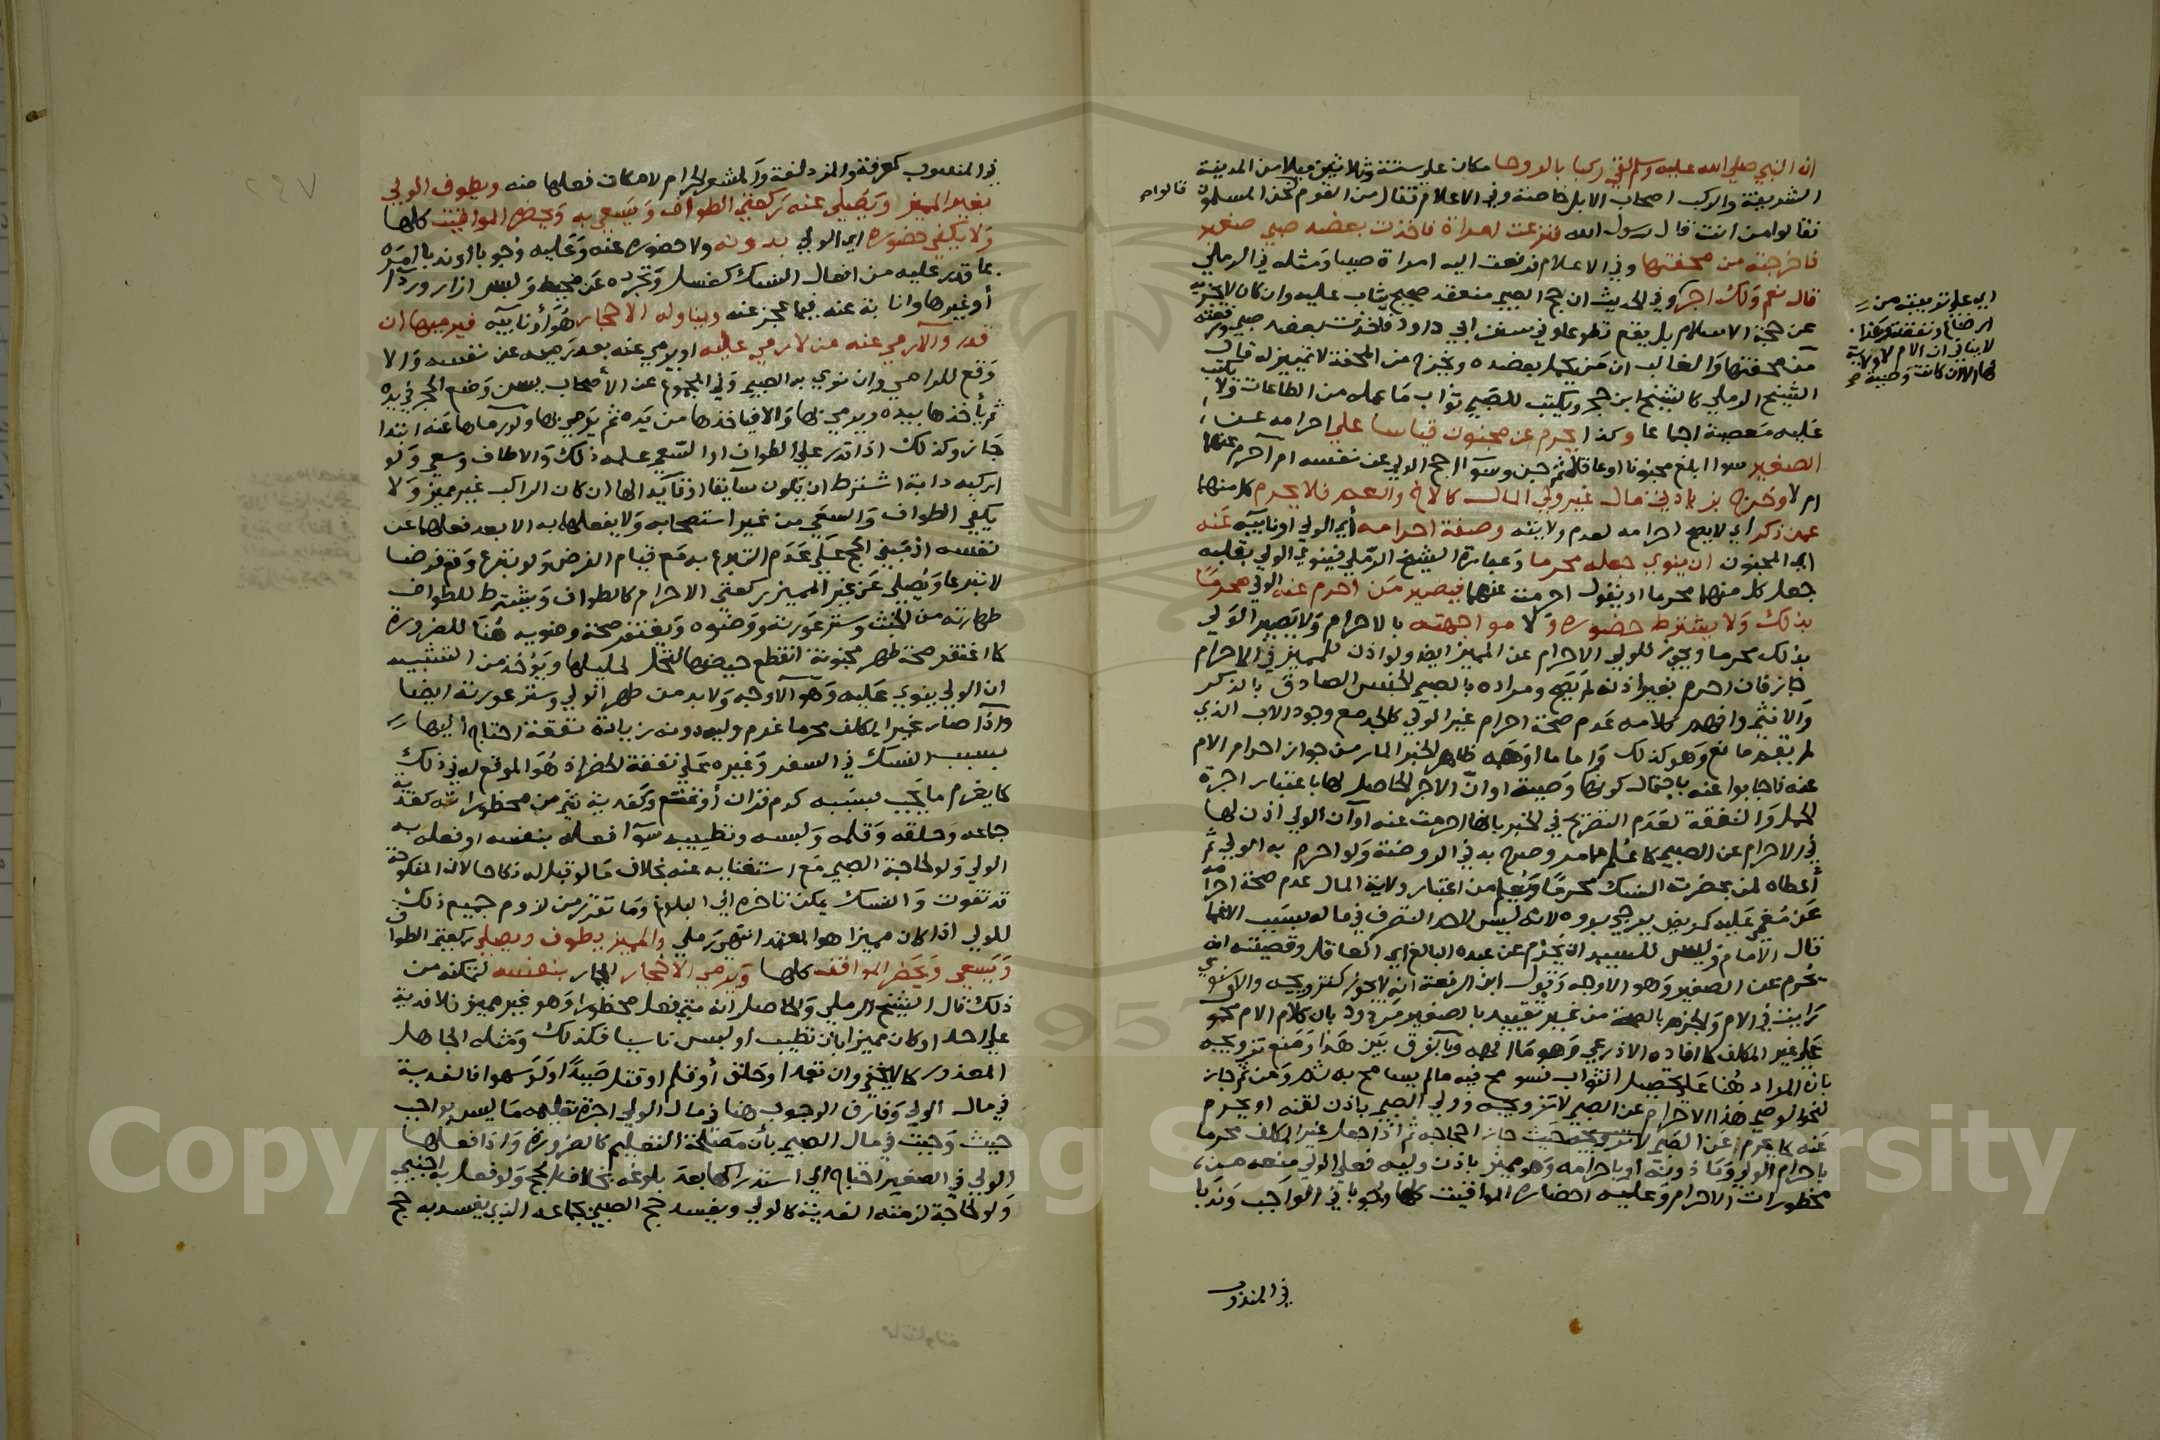 ان النبي صلي الله عليه وسلم لقي ركبا بالروحا مكان علي ستة وثلاثين ميلا من المدينة
الشريفة والركب اصحاب الابل خاصة وفي الاعلام فقال من القوم نحن المسلمون
قالوا
فقالوا من انت قال رسول الله ففزعت امراة فاخذت بعضد صبي صغير
فاخرجته من محفتها وفي الاعلام فرفعت اليه امراة صبيا ومثله في الرملي
قال نعم ولك اجر وفي الحديث ان حج الصبي منعقد صحيح يثاب عليه وان كان لا يجزيه
عن حجة الاسلام بل يقع تطوعا وفي سنن ابي داود فاخذت بعضد صبي ورفعته
من محفتها والغالب ان من يحمل بعضده ويخرج من المحفة لا تمييز له قال
الشيخ الرملي كالشيخ ابن حجر ويكتب للصبي ثواب ما عمله من الطاعات ولا يكتب
عليه معصية اجماعا وكذا يحرم عن مجنون قياسا علي احرامه عن
الصغير سوا ابلغ مجنونا او عاقلا ثم جن وسوا احج الولي عن نفسه ام احرم عنهما
ام لا وخرج بولي مال غير ولي المال كالاخ والعم فلا يحرم كل منهما
عمن ذكر اي لا يصح احرامه لعدم ولايته وصفة احرامه أي الولي او نايبه عنه
اي المجنون ان ينوي جعله محرما وعبارة الشيخ الرملي فينوي الولي بقلبه
جعل كل منهما محرما او يقول احرمت عنهما فيصير من احرم عنه الولي محرما
بذلك ولا يشترط حضوره ولا مواجهته بالاحرام ولا يصير الولي
بذلك محرما ويجوز للولي الاحرام عن المميز ايضا ولو اذن للمميز في الاحرام
جاز فان احرم بغير اذنه لم يصح ومراده بالصبي الجنس الصادق بالذكر
والانثي وافهم كلامه عدم صحة احرام غير الولي كالجد مع وجود الاب الذي
لم يقم به مانع وهو كذلك واما ما اوهمه ظاهر الخبر المار من جواز احرام الام
عنه فاجابوا عنه باحتمال كونها وصية او ان الاجر الحاصل لها باعتبار اجرة
الحمل والنفقة لعدم التصريح في الخبر بانها احرمت عنه او ان الولي اذن لها
في الاحرام عن الصبي كما علم مما مر وصرح به في الروضة ولو احرم به الولي ثم
أعطاه لمن يحضره النسك من اعتبار ولاية المال عدم صحة احرامه
عن مغمي عليه كمريض يرجي برؤه لانه ليس لاحد التصرف في ماله بسبب الاغما
قال الامام وليس للسيد ان يحرم عن عبده البالغ اي العاقل وقضيته انه
يحرم عن الصغير وهو الاوجه وقول ابن الرفعة انه لا يجوز كتزويجه والاسنوي
رايت في الام الجزم بالصحة من غير تقييد بالصغير مردود بان كلام الام محمول
علي غير المكلف كما افاده الاذرعي وهو ما افهمه ويفرق بين هذا ومنع تزويجه
بان المراد هنا علي تحصيل الثواب فسومح فيه ما لم يسامح به ثم ومن ثم جاز
لنحو الوصي هذا الاحرام عن الصبي لا تزويجه وولي الصبي ياذن لقنه او يحرم
عنه كما يحرم عن الصبي لا تزويجه حيث جاز احجاجه ثم اذا جعل غير المكلف محرما
باحرام الولي وماذونه او باحرامه وهو مميز باذن وليه فعلي الولي منعه من
محظورات الاحرام وعليه احضاره المواقيت كلها وجوبا في الواجب وندبا
في المندوب
اي علي تربيته من
لا ينافي ان الام لا ولاية
لها الا ان كانت وصية
في المندوب كعرفة والمزدلفة والمشعر الحرام لامكان فعلها منه ويطوف الولي
بغير المميز ويصلي عنه ركعتي الطواف ويسعي به ويحضره المواقيت كلها
ولا يكفي حضوره اي الولي بدونه ولا حضوره عنه وعليه وجوبا او ندبا امره
بما قدر عليه من افعال النسك كغسل وتجرده عن مخيط ولبس ازار وردا
أو غيرها وانابة عنه فيما عجز عنه ويناوله الاحجار هو أو نايبه فيرميها ان
قدر والا رمي عنه من لا رمي عليه او يرمي عنه بعد رميه عن نفسه والا
وقع للرامي وان نوي به الصبي وفي المجموع عن الأصحاب يسن وضع الحجر في يده
ثم يأخذها بيده ويرمي بها والا فياخذها من يده ثم يرمي بها ولو رماها عنه ابتدا
جاز وكذلك اذا قدر علي الطواف او السعي علمه ذلك والا طاف وسعي ولو
اركبه دابة اشترط ان يكون سايقا او قايدا لها ان كان الراكب غير مميز ولا
يكفي الطواف والسعي من غير استصحابه ولا يفعلها به الا بعد فعلها عن
نفسه اذ مبني الحج علي عدم التبرع به مع قيام الفرض ولو تبرع وقع فرضا
لا تبرعا ويصلي عن غير المميز ركعتي الاحرام كالطواف ويشترط للطواف
طهارته من الخبث وستر عورته ووضوه ويغتفر صحة وضويه هنا للضرورة
كما اغتفر صحة طهر مجنونة انقطع حيضها لتحل لحليلها ويؤخذ من التشبيه
ان الولي ينوي عليه وهو الاوجه ولا بد من طهر الولي وستر عورته ايضا
واذا صار غير المكلف محرما غرم وليه دونه زيادة نفقة احتاج أليها
بسبب النسك في السفر وغيره علي نفقة الحضر اذ هو الموقع له في ذلك
كما يغرم ما يجب بسببه كدم قران أو تمتع وكفدية شي من محظوراته كفدية
جماعه وحلقه وقلمه ولبسه وتطييبه سوا فعله بنفسه او فعله به
الولي ولو لحاجة الصبي مع استغنايه عنه بخلاف ما لو قبل له نكاحا لان المنكوحة
قد تفوت والنسك يمكن تاخره الي البلوغ وما تقرر من لزوم جميع ذلك
للولي اذا كان مميزا هو المعتمد انتهي رملي والمميز يطوف ويصلي ركعتي الطواف
ويسعي ويحضر المواقف كلها ويرمي الاحجار الجمار بنفسه لتمكنه من
ذلك قال الشيخ الرملي والحاصل انه متي فعل محظورا وهو غير مميز فلا فدية
علي احد او كان مميزا بان تطيب او لبس ناسيا فكذلك ومثله الجاهل
المعذور كما لا يخفي وان تعمد او حلق أو قلم او قتل صيدا ولو سهوا فالفدية
في مال الولي وفارق الوجوب هنا في مال الولي اجرة تعليمه ما ليس بواجب
حيث وجبت في مال الصبي بأن مصلحة التعليم كالضرورة واذا فعلها
الولي في الصغير احتاج الي استدراكها بعد بلوغه بخلاف الحج ولو فعل به اجنبي
ولو لحاجة لزمته الفدية كالولي ويفسد حج الصبي بجماعه الذي يفسد به حج
Copyright © King Saud University
1957